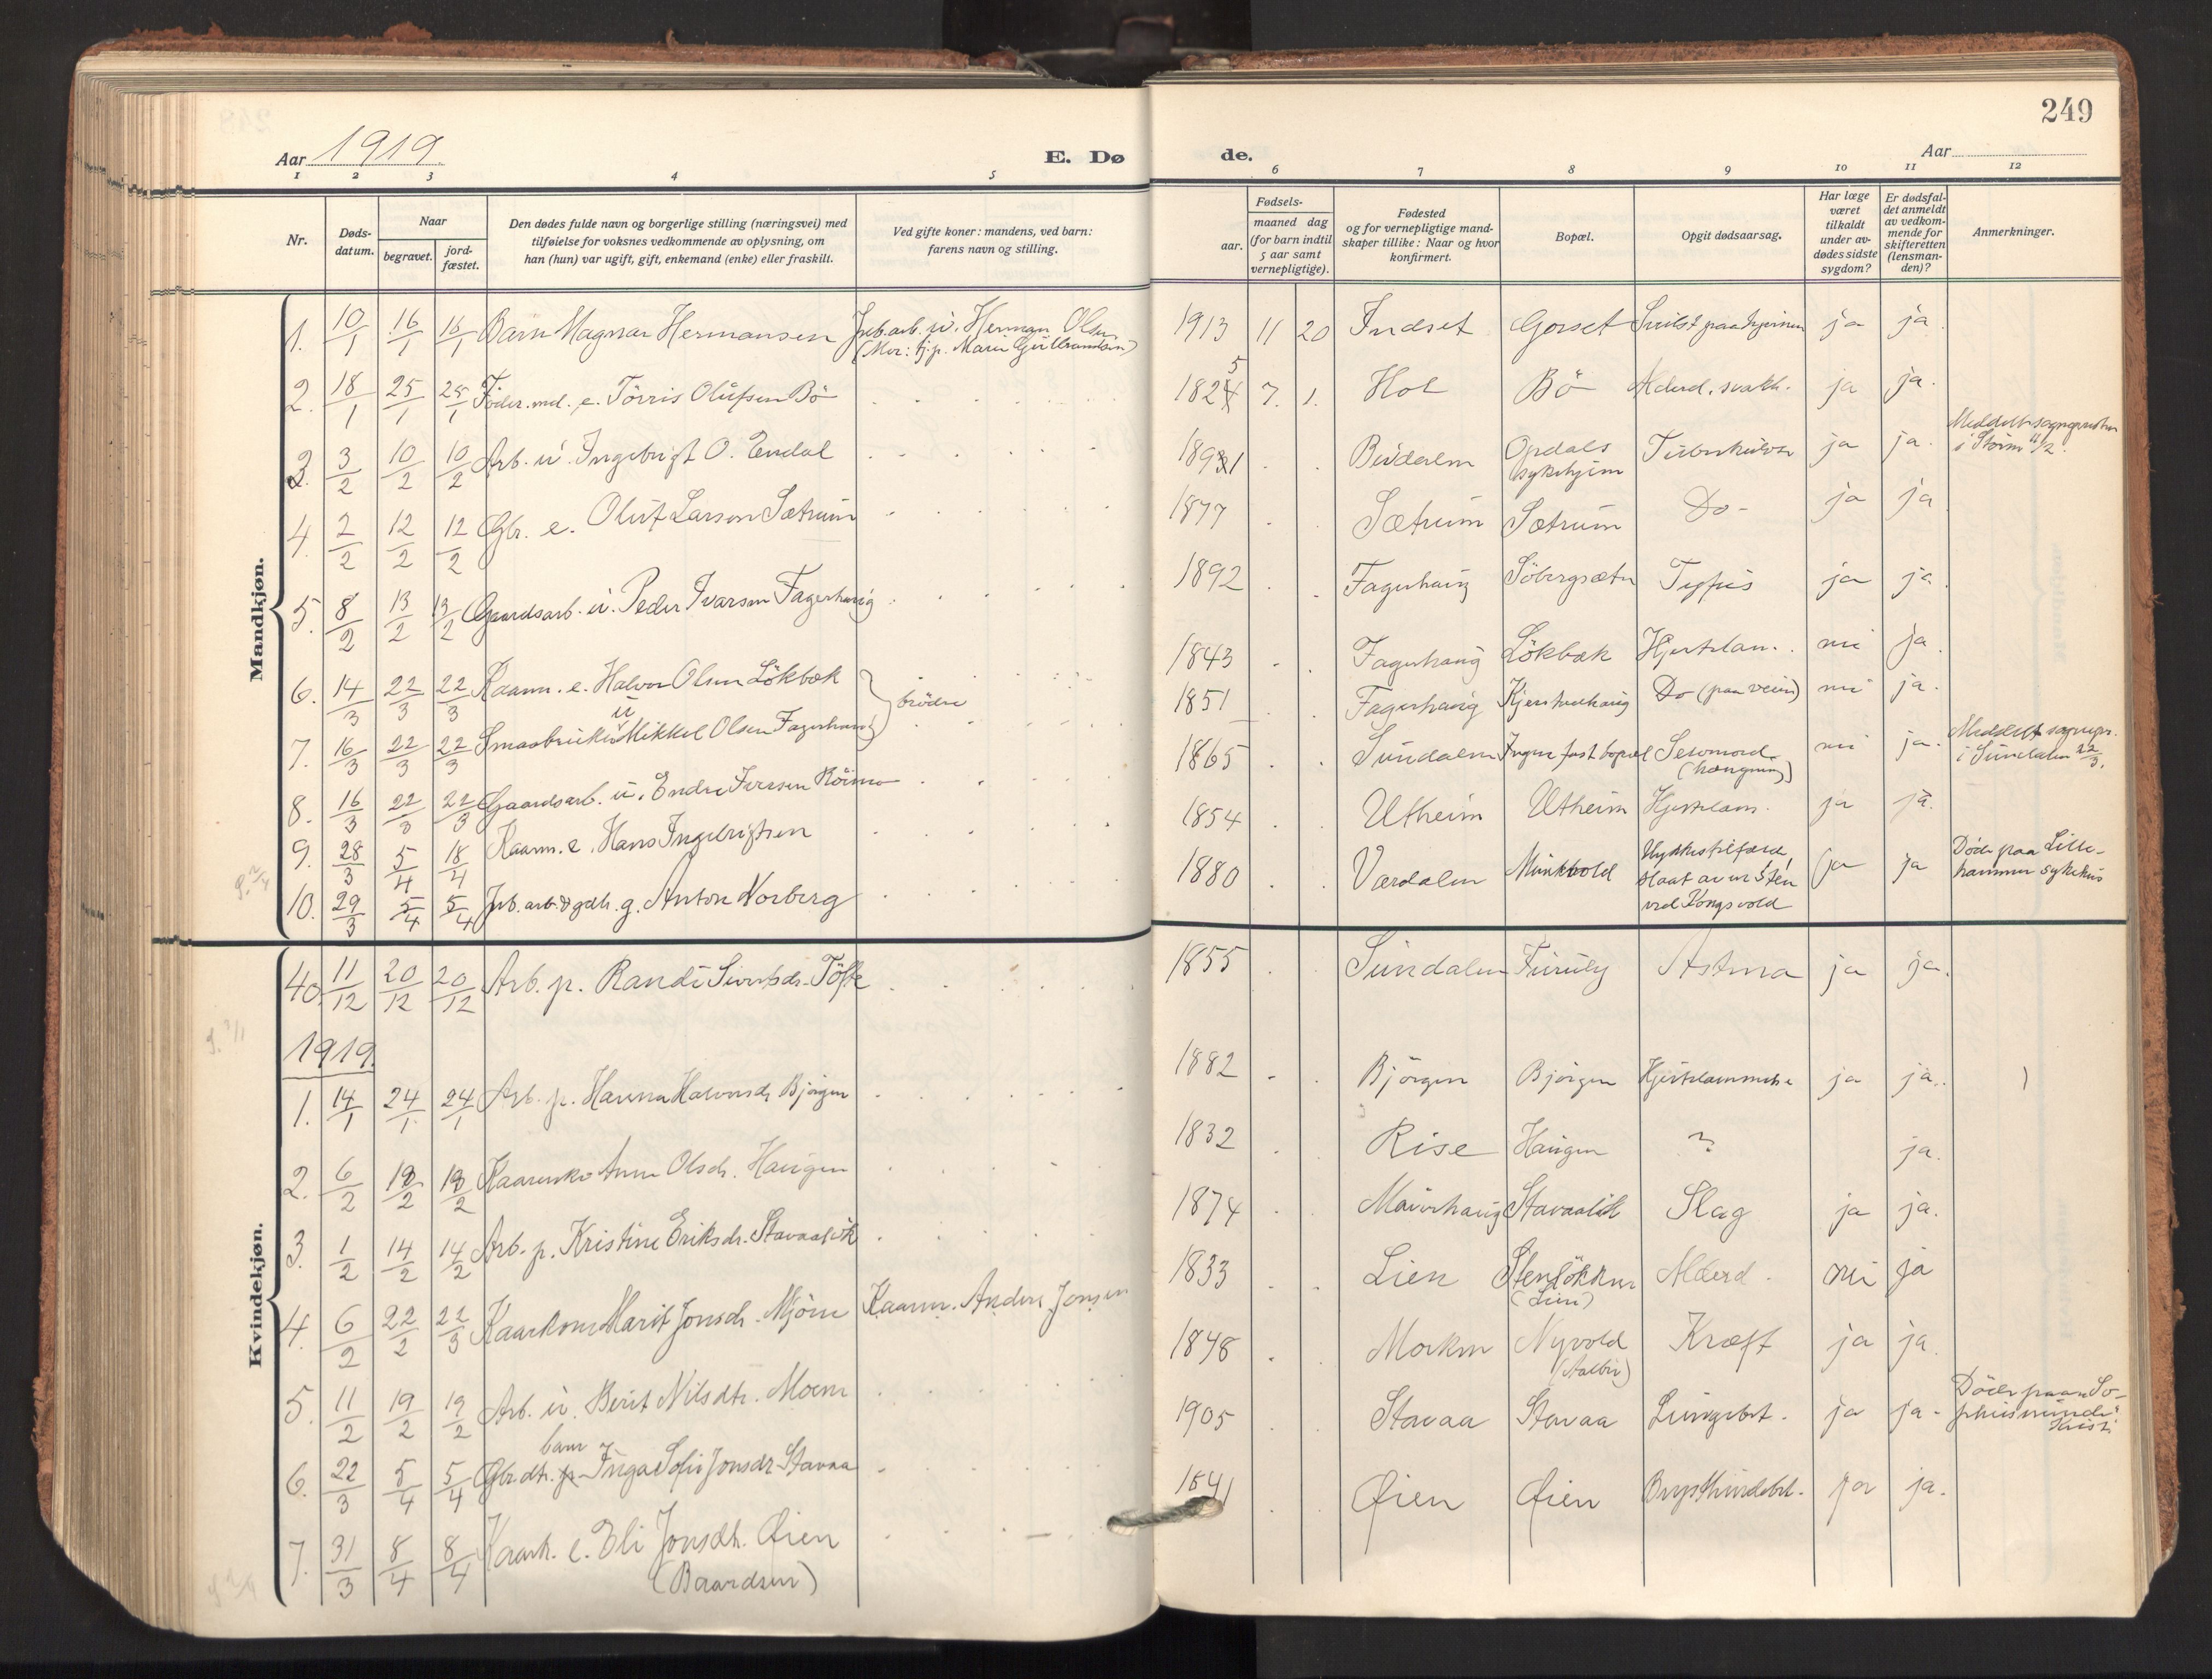 249
Aar 1919
E. Dø
de.
Aar
1 2 3 4 5 6 7 8 9 10 11 12
Nr.
Døds-
datum.
Naar
begravet.
jord-
fæstet.
Den dødes fulde navn og borgerlige stilling (næringsvei) med
tilføielse for voksnes vedkommende av oplysning, om
han (hun) var ugift, gift, enkemand (enke) eller fraskilt.
Ved gifte koner: mandens, ved barn:
farens navn og stilling.
Fødsels-
aar.
maaned dag
(for barn indtil
5 aar samt
vernepligtige).
Fødested
og for vernepligtige mand-
skaper tillike: Naar og hvor
konfirmert.
Bopæl.
Opgit dødsaarsag.
Har læge
været
tilkaldt
under av-
dødes sidste
sygdom?
Er dødsfal-
det anmeldt
av vedkom-
mende for
skifteretten
(lensman-
den)?
Anmerkninger.
Mandkjøn.
1. 10/1 16/1 16/1 Barn Magnar Hermansen Jrb.arb. u. Herman Olsen (Mor: tj.p. Marie Gulbrandsen) 1913 11 20 Indset Gorset paa hjernen ja ja
2. 18/1 25/1 25/1 Föder.md. e. Törris Olufsen Bö 1825 7. 1. Hol Bö Alderd. svakh. ja ja.
3. 3/2 10/2 10/2 Arb. u. Ingebrigt O. Endal 1891 Budalen Opdals sykehjem Tuberkulose ja ja. Meddelt sognepresten i Støren 11/2.
4. 2/2 12/2 12/2 Gbr. e. Oluf Larsen Sætrum 1877 Sætrum Sætrum Do- ja ja
5. 8/2 13/2 13/2 Gaardsarb. u. Peder Ivarsen Fagerhaug 1892 Fagerhaug Söbergsæter Tyfus ja ja.
6. 14/3 22/3 22/3 Kaarm. e. Halvor Olsen Lökbæk } brödre 1843 Fagerhaug Lökbæk Hjertelam. nei ja.
7. 16/3 22/3 22/3 Smaabruker u Mikkel Olsen Fagerhaug 1851 Fagerhaug Kjerstuehaug Do (paa veien) nei ja.
8. 16/3 22/3 22/3 Gaardsarb. u. Endre Iversen Röimo 1865 Sundalen Ingen fast bopæl Selvmord (hængning) nei ja. Meddelt sognepr. i Sundalen 22/3.
9. 28/3 5/4 18/4 Kaarm. e. Hans Ingebrigtsen 1854 Utheim Utheim Hjertelam. ja ja.
10. 29/3 5/4 5/4 Jrb. arb. & gdb. g. Anton Norberg 1880 Værdalen Munkvold Ulykkestilfælde, slaat av en sten ved Kongsvold ja ja Döde paa Lille-hammer sykehus
Kvindekjøn.
40. 11/12 20/12 20/12 Arb. p. Randi Sivertsdr. Töfte 1855 Sundalen Furuly Astma ja ja.
1919.
1. 14/1 24/1 24/1 Arb. p. Hanna Halvorsdr Bjørgen 1882 Bjørgen Bjørgen Hjertelammelse ja ja.
2. 6/2 18/2 18/2 Kaarenke Anne Olsdr. Haugen 1832 Rise Haugen ? ja.
3. 1/2 14/2 14/2 Arb. p. Kristine Eriksdr. Stavaalök 1874 Maurhaug Stavaalök Slag ja ja.
4. 6/2 22/2 22/3 Kaarkone Marit Jonsdr. Mjöen Kaarm. Anders Jonsen 1833 Lien Stenlökken (Lien) Alderd. nei ja
5. 11/2 19/2 19/2 Arb. u. Berit Nilsdtr. Moen 1848 Morken Nyvold (Aalbu) Kræft ja ja.
6. 22/3 5/4 5/4 Gbr.dtr. barn Inga Sofie Jonsdr Stavaa 1905 Stavaa Stavaa Lungebet. ja ja. Döde paa So-phiesminde Kristi.
7. 31/3 8/4 8/4 Kaark. e. Eli Jonsdtr. Øien (Baardsen) 1841 Øien Øien Brysthindebet. ja ja.